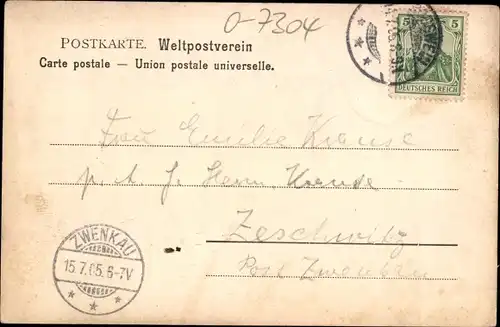 0-7304
POSTKARTE. Weltpostverein
Carte postale — Union postale universelle.
5 5
DEUTSCHES REICH
Frau Emilie Krause
p. A. J. Herrn Krause
Zeschwitz
Post Zwenkau
ZWENKAU
15.7.05.6-7V